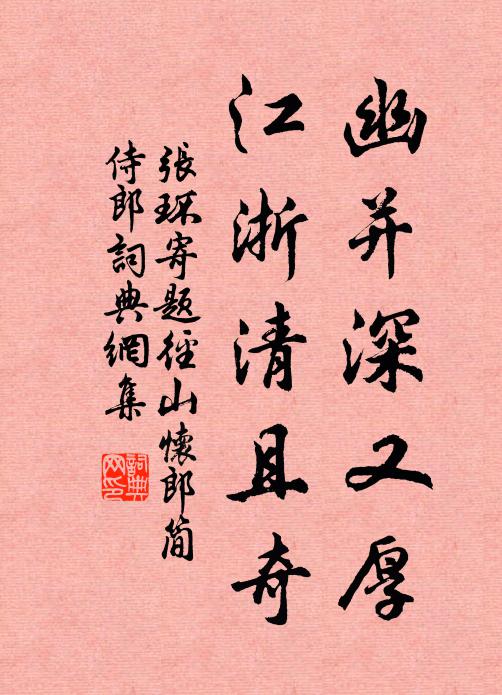 幽并深又厚
江浙清且奇
張环寄題徑山懷郎簡
侍郎詞典網集
詞典網印